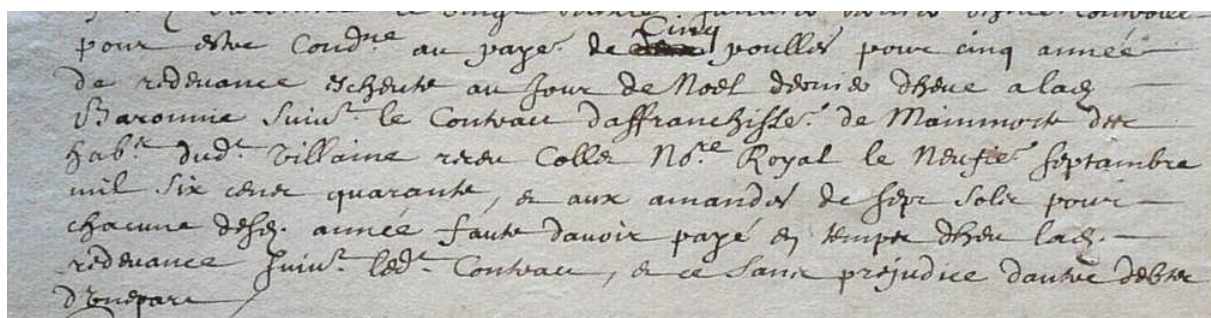 pour estre Cond.ne au paye.t de Cinq poulles pour cinq année
de redevance escheute au Jour de Noel dernier dheue a lad.
Baronnie Suiv.t le Contract daffranchisse.t de Mainmorte des
hab.ts dud.t Villaine receu Collet No.re Royal le Neufie.e Septambre
mil six cens quarante, et aux amandes de sept solz pour
chacune desd. année faute davoir payé en temps dheu lad.
redevance suiv.t led.t Contract, et ce sans préjudice dautre debtes
d'Unepart